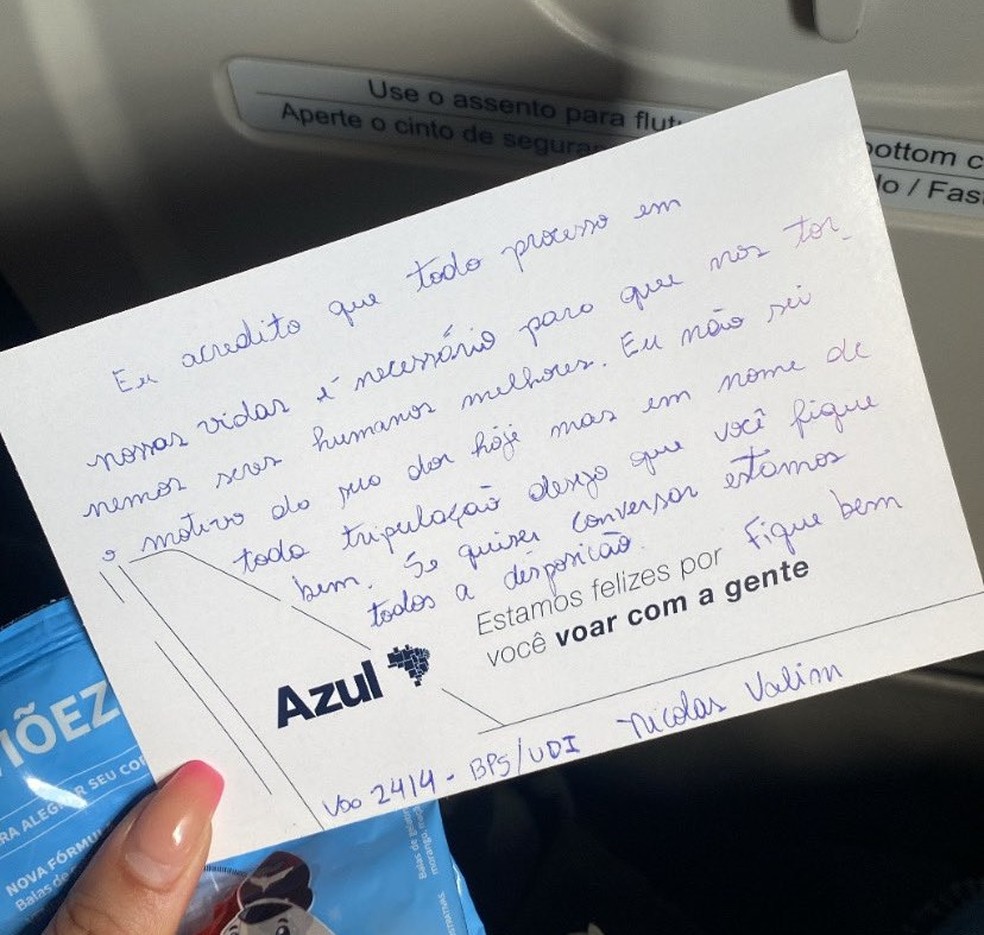 Use o assento para flut
ottom c
Aperte o cinto de segura
lo / Fas
Eu acredito que todo processo em
nossas vidas é necessário para que nos tor_
nemos seres humanos melhores. Eu não sei
o motivo da sua dor hoje mas em nome de
toda tripulação desejo que você fique
bem. Se quiser conversar estamos
todos a disposição. Fique bem
Estamos felizes por
você voar com a gente
Azul
Nicolas Valim
Voo 2414 - BPS/UDI
IÕEZ
RA ALEGRAR SEU COR
NOVA FÓRMUL
Balas de